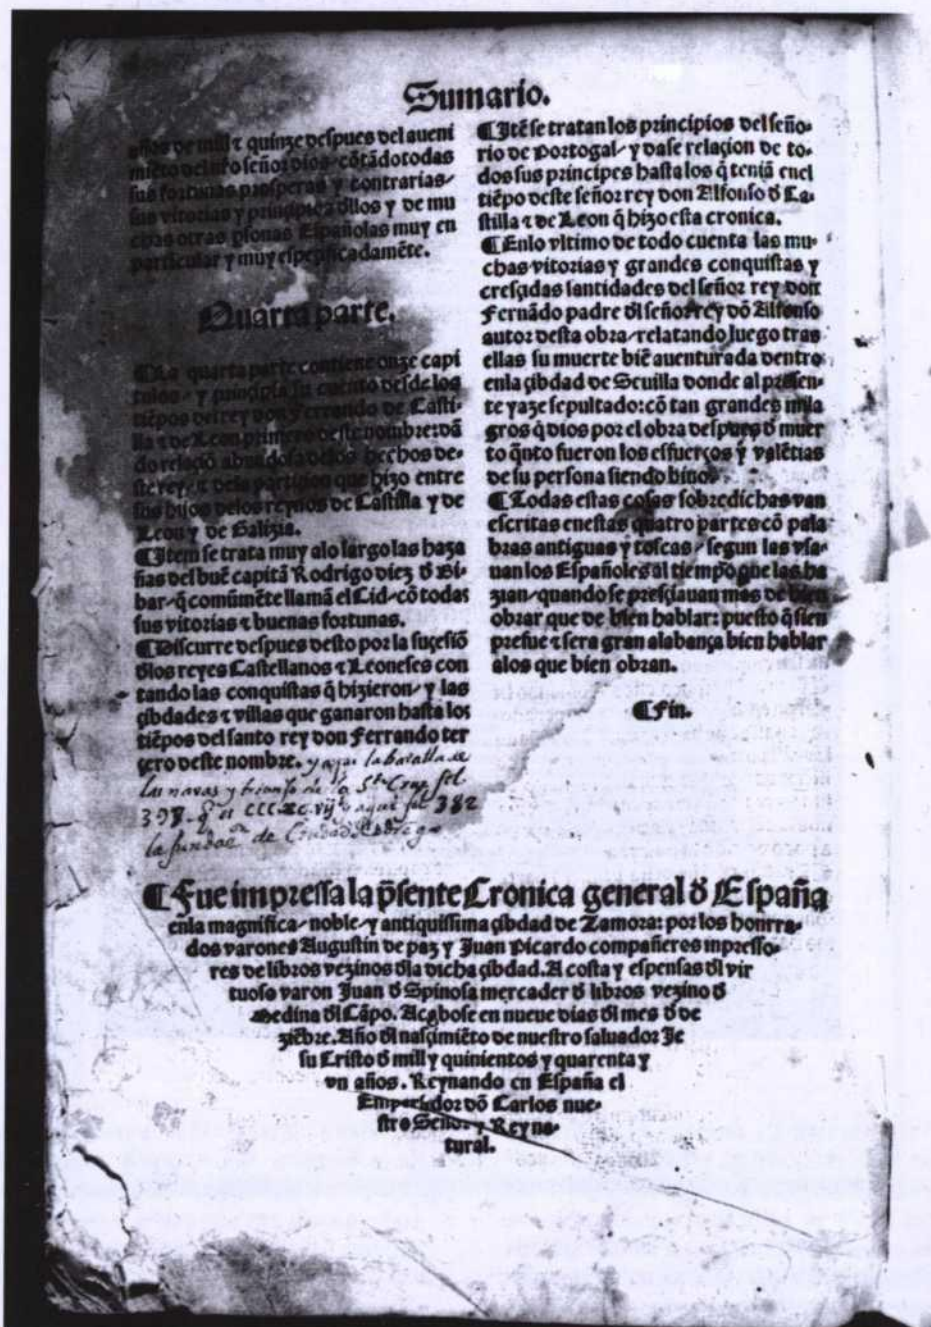 Sumario.
años de mill ⁊ quinze despues del aueni
miẽto del nr̃o señor dios/ cõtãdo todas
sus fortunas prosperas y contrarias/
sus vitorias y principios dllos y de mu
chas otras p̃sonas Españolas muy en
particular y muy espeçificadamẽte.
Quarta parte.
¶La quarta parte contiene onze capi
tulos/ y principia su cuento desde los
tiẽpos del rey don Ferrando de Casti-
lla ⁊ de Leon primero deste nombre: dã
do relaçiõ abundosa delos hechos de-
ste rey/ ⁊ dela partiçion que hizo entre
sus hijos delos reynos de Castilla y de
Leon y de Galizia.
¶Item se trata muy alo largo las haza
ñas del buẽ capitã Rodrigo diez d̃ Bi-
bar/ q̃ comũmẽte llamã el Cid/ cõ todas
sus vitorias ⁊ buenas fortunas.
¶Discurre despues desto por la suçesiõ
dlos reyes Castellanos ⁊ Leoneses con
tando las conquistas q̃ hizieron/ y las
çibdades ⁊ villas que ganaron hasta los
tiẽpos del santo rey don Ferrando ter
çero deste nombre. y aqui la batalla de
las navas y triunfo de la Sta Cruz fol
397. q̃ es cccxc.vij y aqui fol 382
la fundaon de Ciudad Rodrigo
¶Itẽ se tratan los principios del seño-
rio de Portogal/ y dase relaçion de to-
dos sus principes hasta los q̃ teniã enel
tiẽpo deste señor rey don Alfonso d̃ Ca-
stilla ⁊ de Leon q̃ hizo esta cronica.
¶Enlo vltimo de todo cuenta las mu-
chas vitorias y grandes conquistas y
cresçidas santidades del señor rey don
Fernãdo padre dl señor rey dõ Alfonso
autor desta obra/ relatando luego tras
ellas su muerte biẽ auenturada dentro
enla çibdad de Seuilla donde al presen-
te yaze sepultado: cõ tan grandes mila
gros q̃ dios por el obra despues d̃ muer
to q̃nto fueron los esfuerços y valẽtias
de su persona siendo biuo.
¶Todas estas cosas sobredichas van
escritas enestas quatro partes cõ pala
bras antiguas y toscas/ segun las vsa-
uan los Españoles al tiempo que las ha
zian/ quando se presçiauan mas de bien
obrar que de bien hablar: puesto q̃ siem
pre fue ⁊ sera gran alabança bien hablar
alos que bien obran.
¶Fin.
¶Fue impressa la p̃sente Cronica general d̃ España
enla magnifica/ noble/ y antiquissima çibdad de Zamora: por los honrra-
dos varones Augustin de paz y Juan Picardo compañeros inpresso-
res de libros vezinos dla dicha çibdad. A costa y espensas dl vir
tuoso varon Juan d̃ Spinosa mercader d̃ libros vezino d̃
Medina dl Cãpo. Acabose en nueue dias dl mes d̃ de
ziẽbre. Año dl nasçimiẽto de nuestro saluador Je
su Cristo d̃ mill y quinientos y quarenta y
vn años. Reynando en España el
Emperador dõ Carlos nue-
stro Señor y Rey na-
tural.